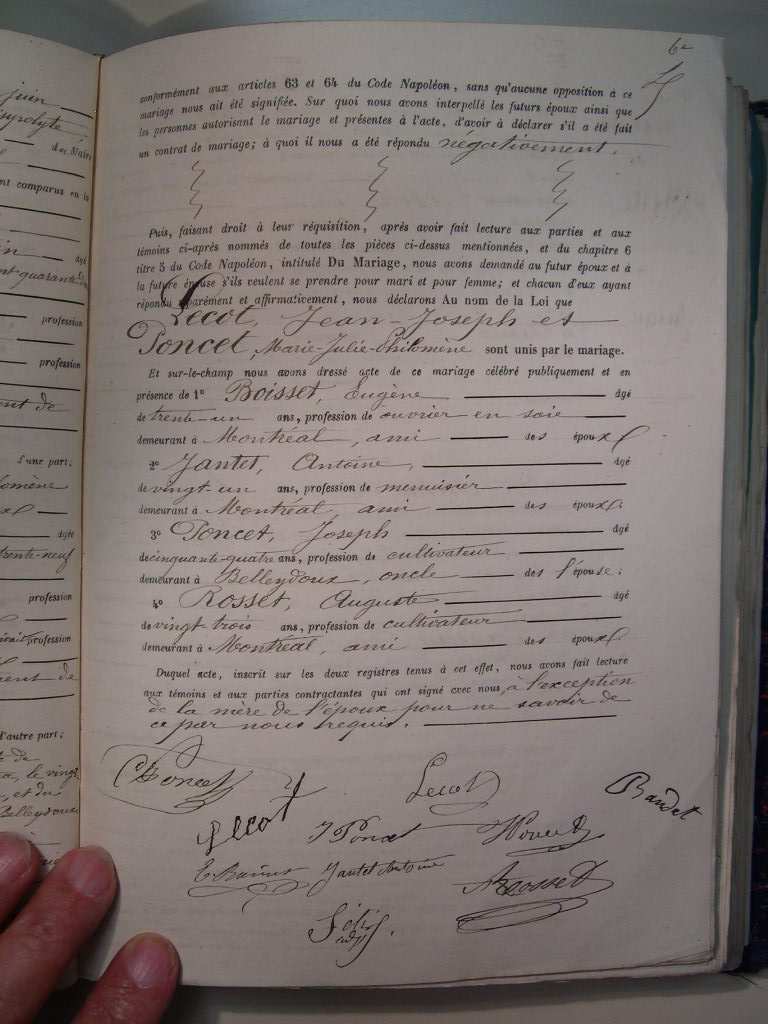 juin
hyppolyte,
des Mairi
ent comparus en la
in
âgé
profession
profession
d'une part;
lomène
âgée
trente-neuf
profession
profession
d'autre part;
te de
, le vingt
, et du
Belleydoux
6
conformément aux articles 63 et 64 du Code Napoléon, sans qu'aucune opposition à ce
mariage nous ait été signifiée. Sur quoi nous avons interpellé les futurs époux ainsi que
les personnes autorisant le mariage et présentes à l'acte, d'avoir à déclarer s'il a été fait
un contrat de mariage; à quoi il nous a été répondu négativement.
Puis, faisant droit à leur réquisition, après avoir fait lecture aux parties et aux
témoins ci-après nommés de toutes les pièces ci-dessus mentionnées, et du chapitre 6
titre 5 du Code Napoléon, intitulé Du Mariage, nous avons demandé au futur époux et à
la future épouse s'ils veulent se prendre pour mari et pour femme; et chacun d'eux ayant
répondu séparément et affirmativement, nous déclarons Au nom de la Loi que
Lecot, Jean-Joseph et
Poncet, Marie-Julie-Philomène sont unis par le mariage.
Et sur-le-champ nous avons dressé acte de ce mariage célébré publiquement et en
présence de 1º Boisset, Eugène âgé
de trente-un ans, profession de ouvrier en soie
demeurant à Montréal, ami des époux
2º Jantet, Antoine, âgé
de vingt-un ans, profession de menuisier
demeurant à Montréal, ami des époux
3º Poncet, Joseph âgé
de cinquante-quatre ans, profession de cultivateur
demeurant à Belleydoux, oncle de l'épouse;
4º Rosset, Auguste âgé
de vingt-trois ans, profession de cultivateur
demeurant à Montréal, ami des époux
Duquel acte, inscrit sur les deux registres tenus à cet effet, nous avons fait lecture
aux témoins et aux parties contractantes qui ont signé avec nous, à l'exception
de la mère de l'époux pour ne savoir de
ce par nous requis.
Poncet Lecot Baudet
Lecot J Poncet
Jantet Antoine A Rosset